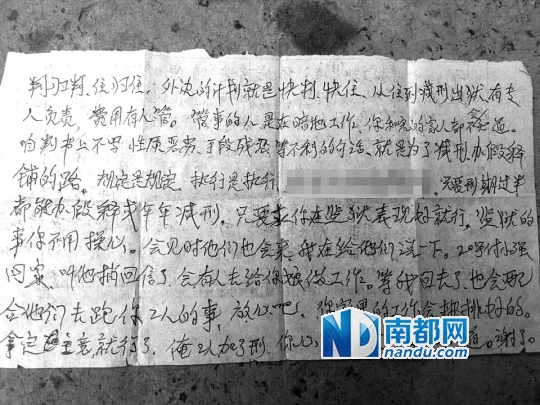 判归判、住归住。外边的计划就是快判、快住、从住到减刑出狱有专
人负责,费用有人管。管事的人是在暗地工作,你和我的家人都不知道。
咱判书上不写性质恶劣、手段残忍等不利的句话、就是为了减刑办假释
铺的路。规定是规定、执行是执行, 只要刑期过半
都能办假释或年年减刑,只要求你在监狱表现好就行,监狱的
事你不用操心。会见时他们也会来,我在给他们说一下。20号付小强
回家,叫他捎回信了,会有人去给你做工作。等我回去了,也会配
合他们去跑你2人的事,放心吧,你家里的工作会安排好的。
拿定主意就行了,俺2人加了刑,你心 道。谢了。
ND 南都网
nandu.com